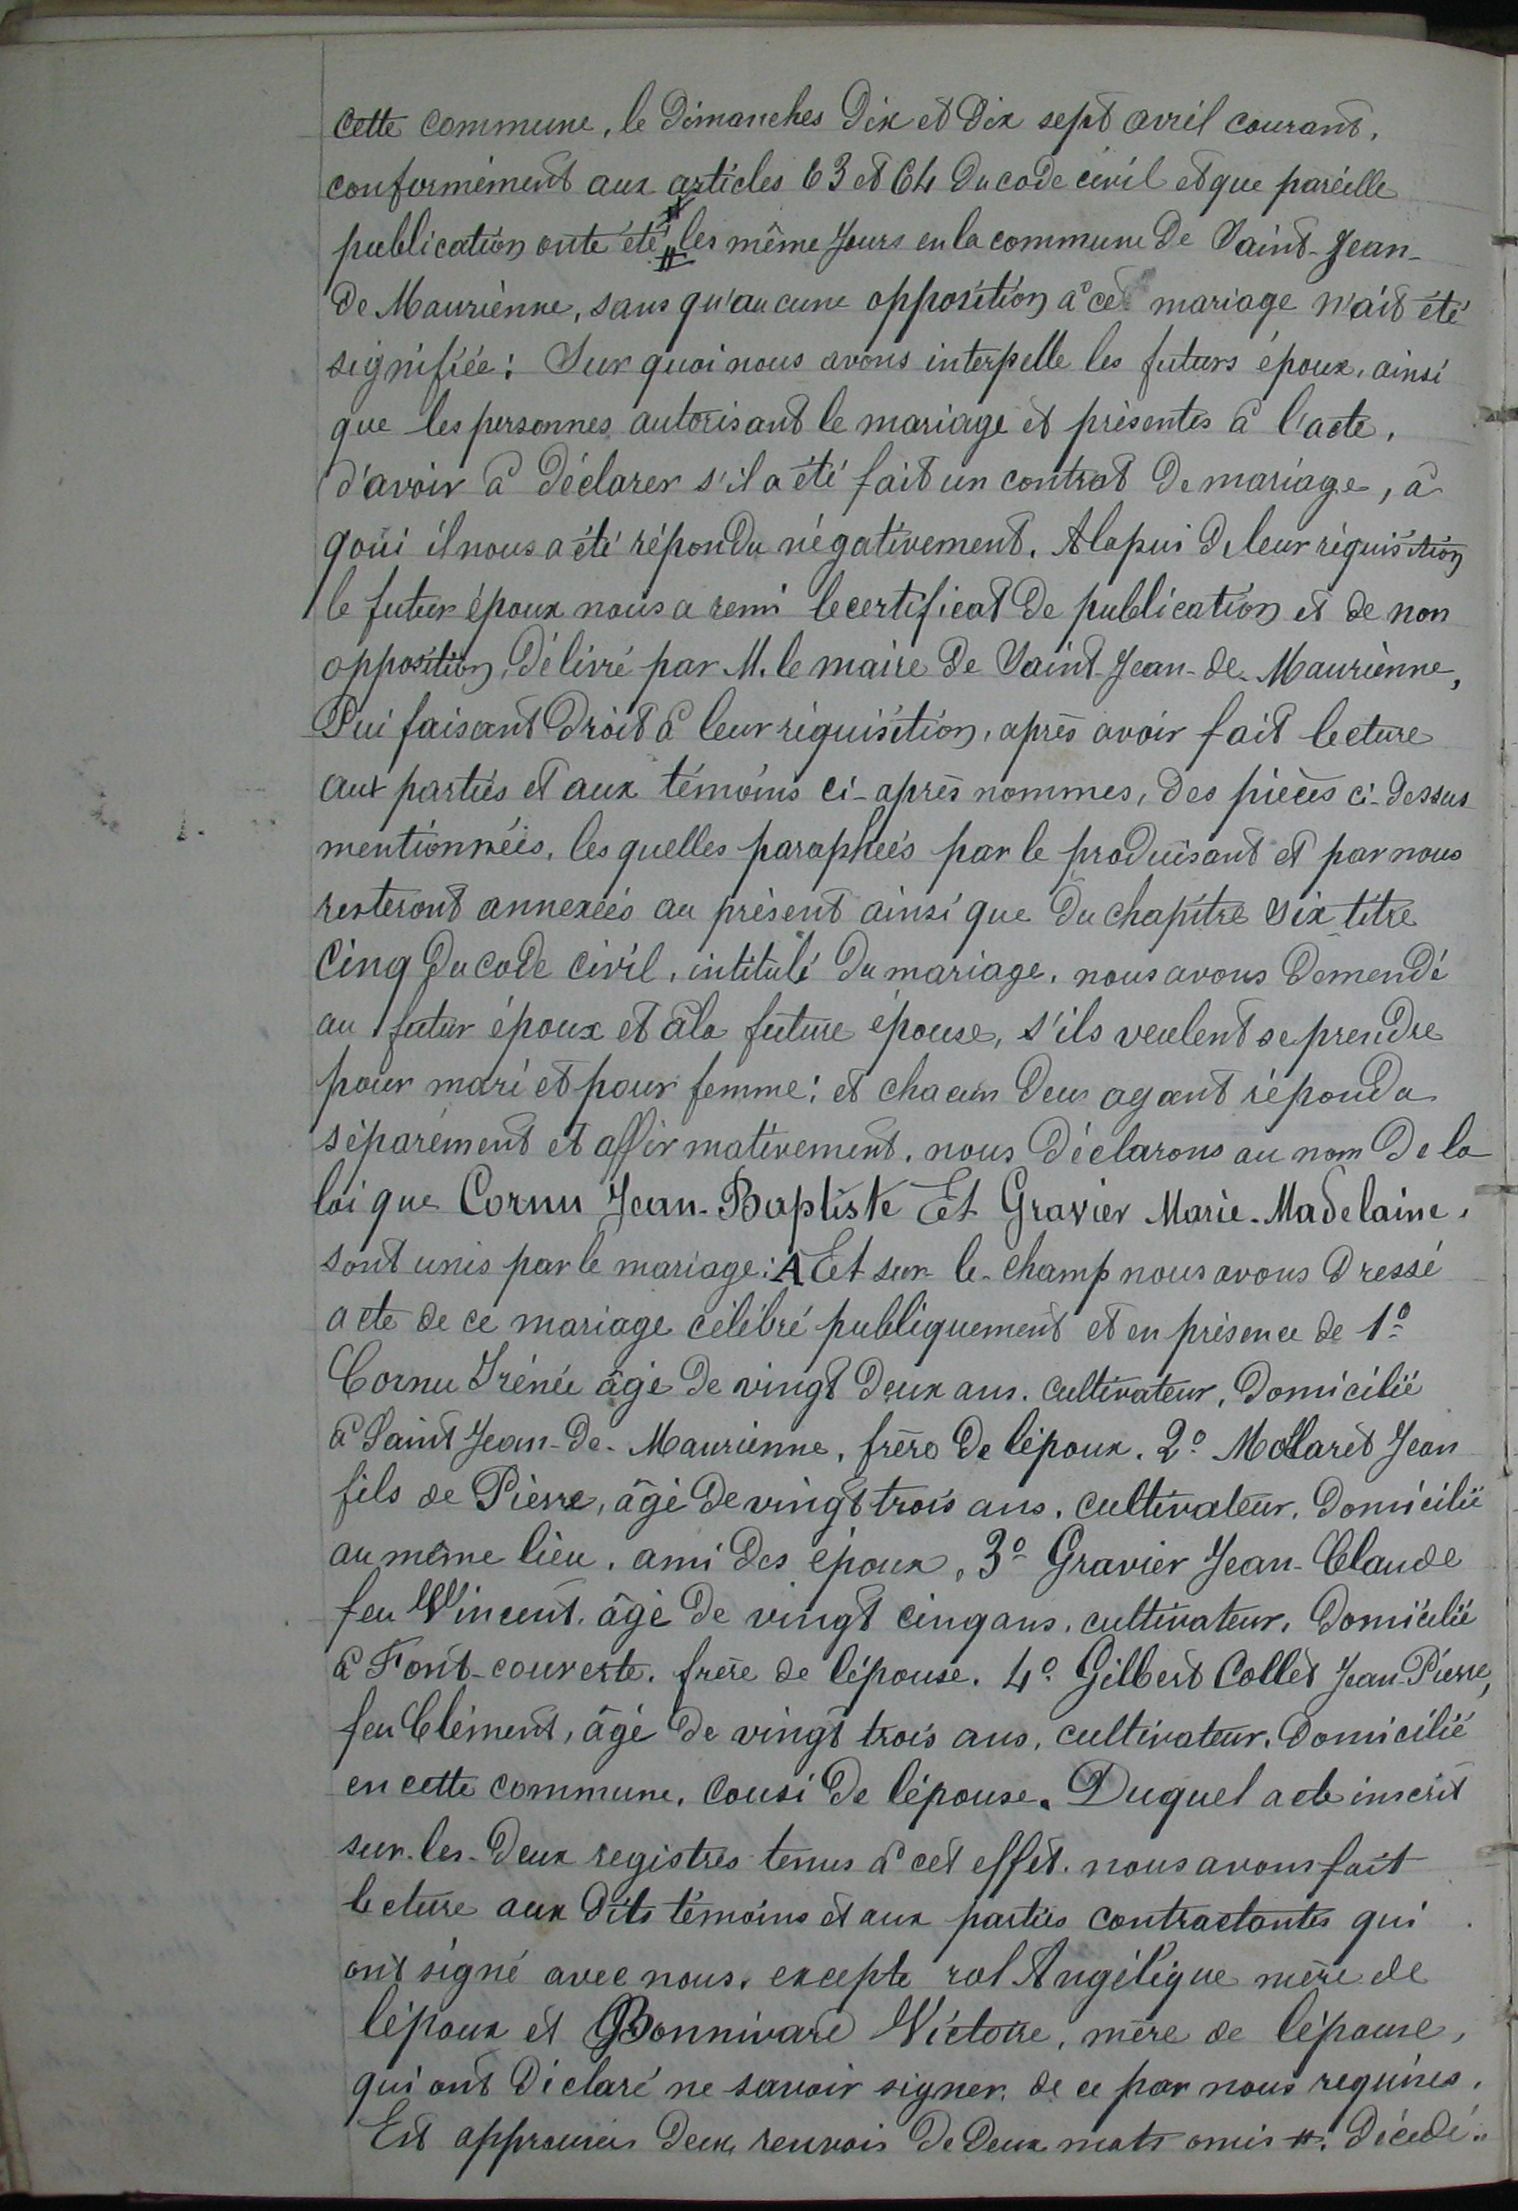 cette commune, le dimanches dix et dix sept avril courant,
conformément aux articles 63 et 64 du code civil et que pareille
publication onte été # les même jours en la commune de Saint-Jean-
de Maurienne, sans qu'aucune opposition à ce mariage n'ait été
signifiée: Sur quoi nous avons interpelle les futurs époux, ainsi
que les personnes autorisant le mariage et présentes à l'acte,
d'avoir à déclarer s'il a été fait un contrat de mariage, à
qoui il nous a été répondu négativement. A lapui de leur réquisition
le futur époux nous a remi le certificat de publication et de non
opposition, délivré par M. le maire de Saint-Jean-de-Maurienne,
Pui faisant droit à leur réquisition, après avoir fait lecture
aux parties et aux témoins ci-après nommes, des pièces ci-dessus
mentionnées, les quelles paraphées par le produisant et par nous
resteront annexées au présent ainsi que du chapitre six titre
Cinq du code civil, intitulé du mariage, nous avons demendé
au futur époux et à la future épouse, s'ils veulent se prendre
pour mari et pour femme: et chacun deux ayant répondu
séparément et affirmativement, nous déclarons au nom de la
loi que Cornu Jean-Baptiste Et Gravier Marie-Madelaine,
sont unis par le mariage: A Et sur-le-champ nous avons dressé
acte de ce mariage célébré publiquement et en présence de 1º
Cornu Irénée âgé de vingt deux ans, cultivateur, domicilié
à Saint Jean-de-Maurienne, frère de lépoux. 2º Mollaret Jean
fils de Pierre, âgé de vingt trois ans, cultivateur, domicilié
au même lieu, ami des époux, 3º Gravier Jean-Claude
feu Vincent, âgé de vingt cinq ans, cultivateur, domicilié
à Font-couverte, frère de lépouse. 4º Gilbert Collet Jean-Pierre,
feu Clément, âgé de vingt trois ans, cultivateur, domicilié
en cette commune, cousi de lépouse. Duquel acte inscrit
sur-les-deux registres tenus à cet effet, nous avons fait
lecture aux dits témoins et aux parties contractantes qui
ont signé avec nous, excepte rol Angélique mère de
lépoux et Bonnivard Victoire, mère de lépouse,
qui ont déclaré ne savoir signer, de ce par nous requises.
Est approuvés deux renvois de deux mots omis #. décédé..